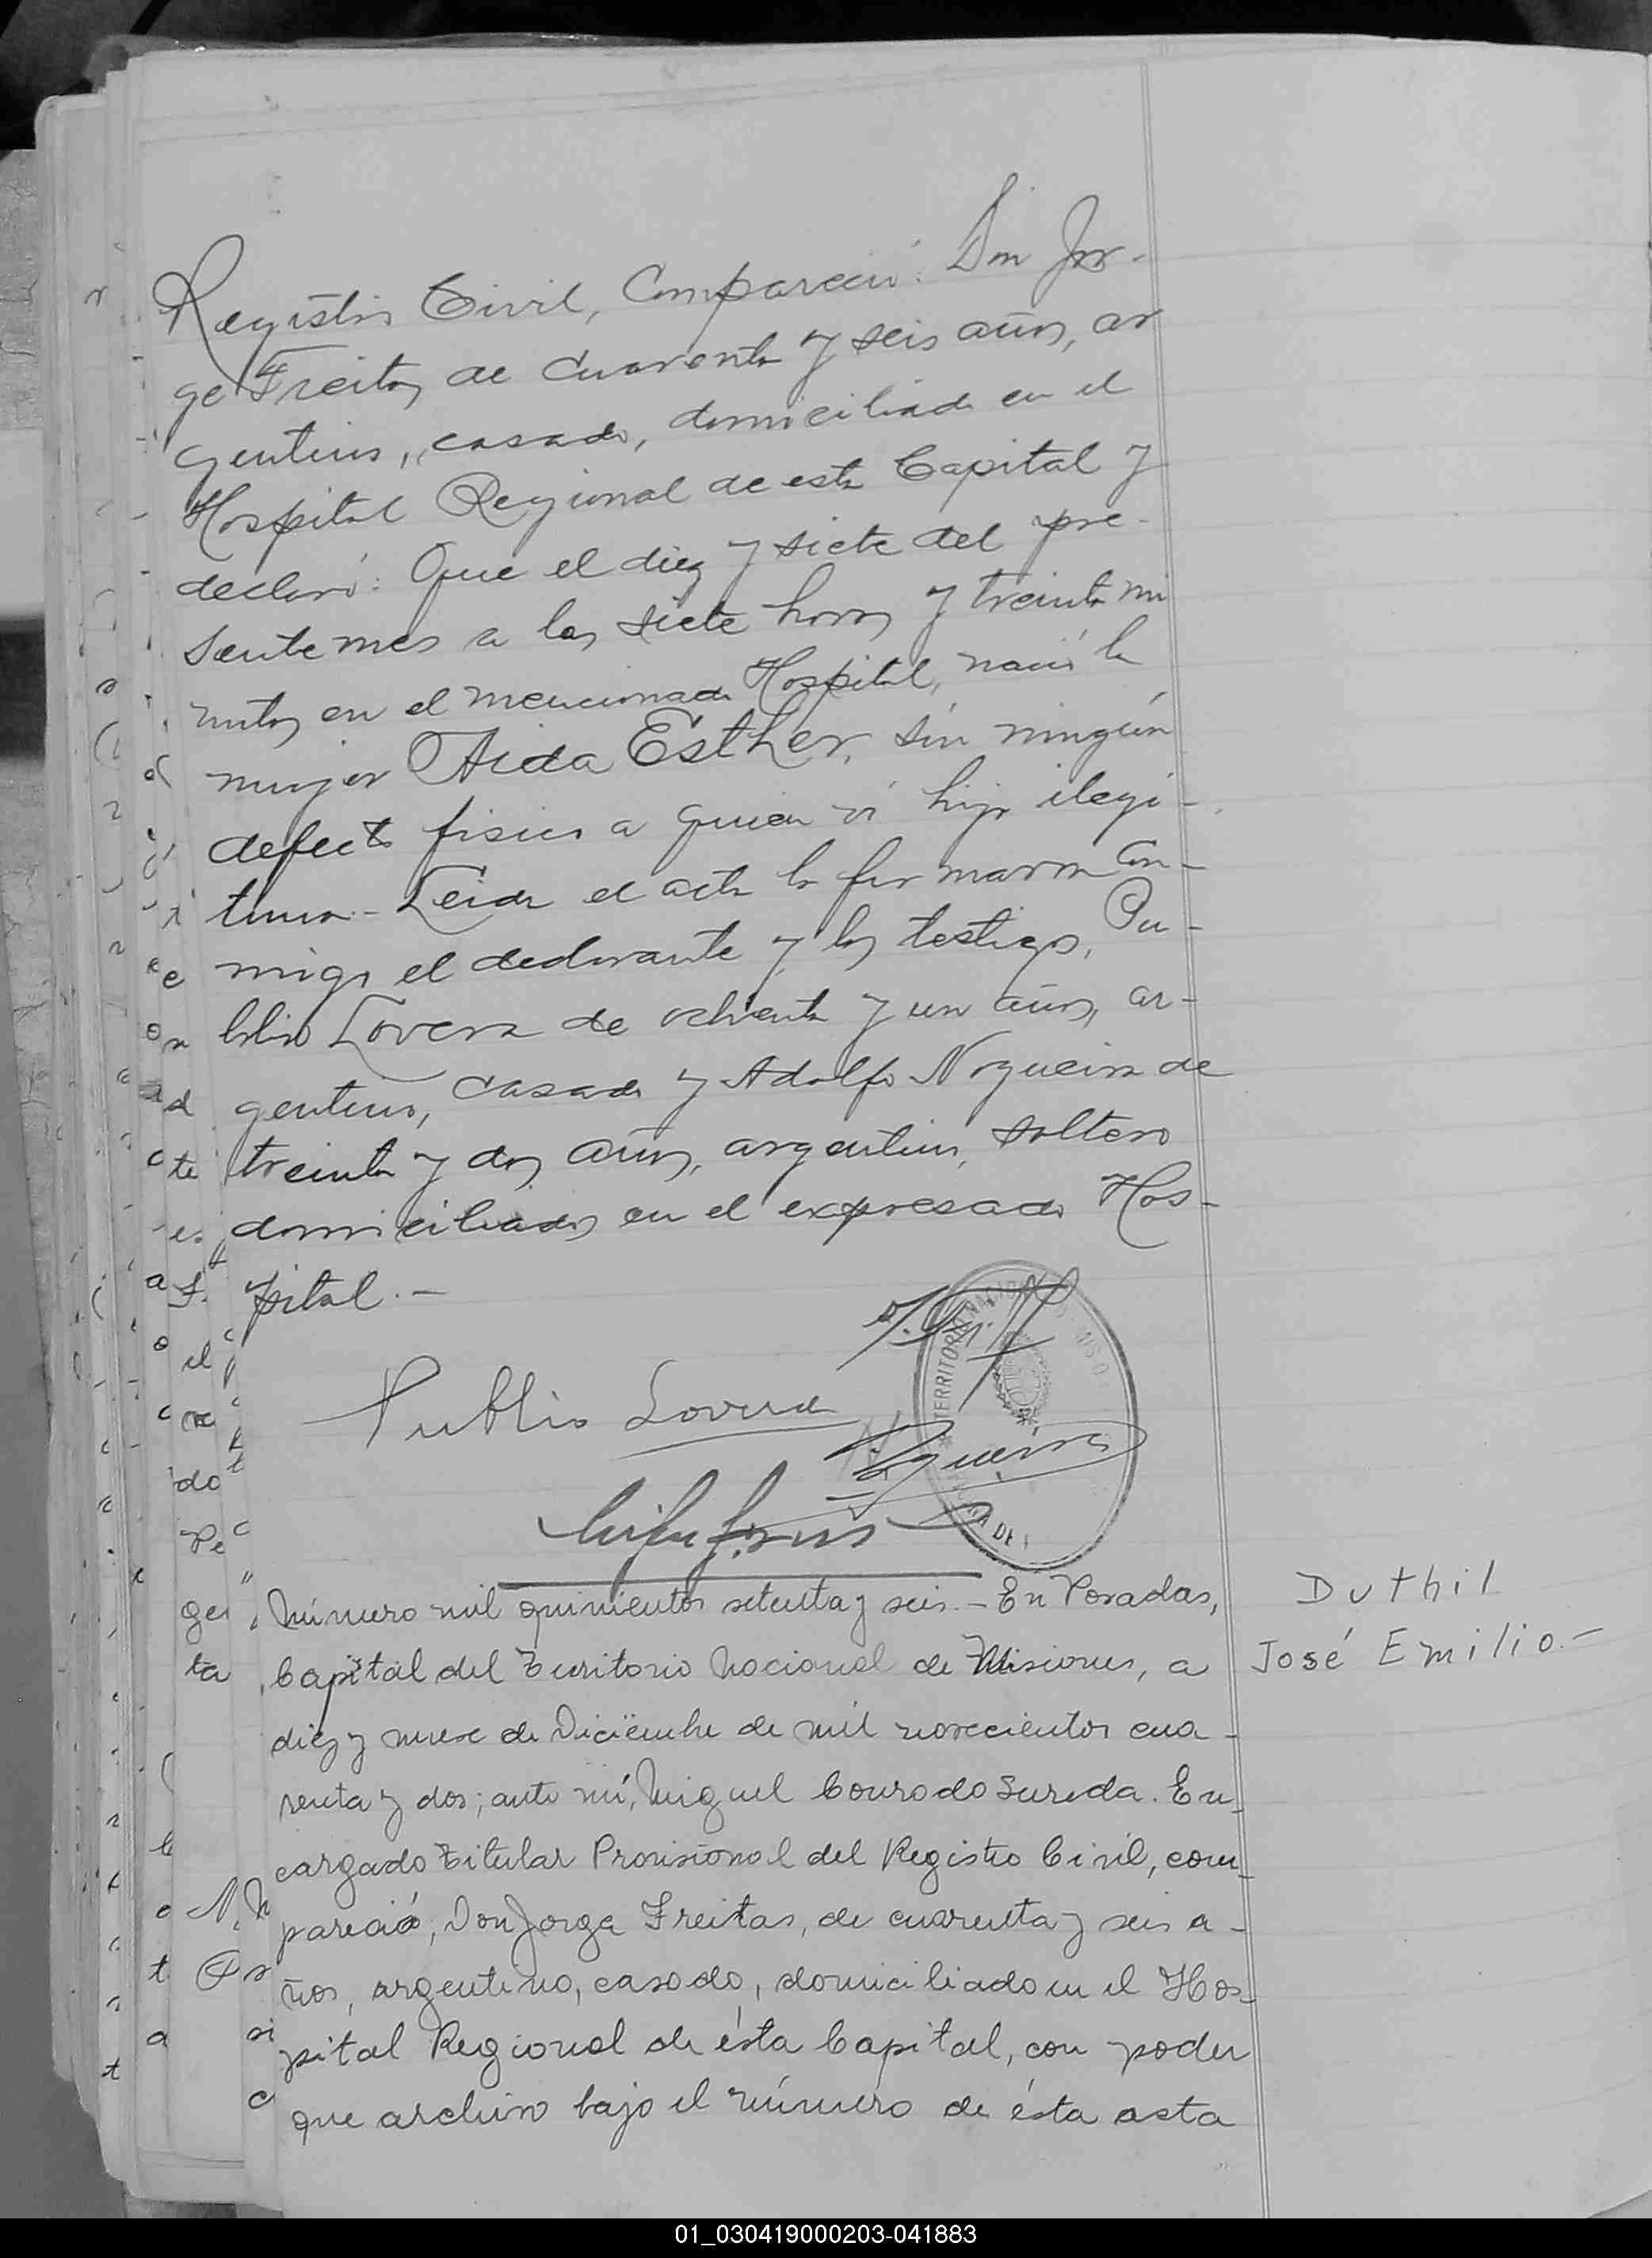 Registro Civil, Compareció: Don Jor-
ge Freitas de cuarenta y seis años, ar
gentino, casado, domiciliado en el
Hospital Regional de esta Capital y
declaró: Que el diez y siete del pre-
sente mes a las siete horas y treinta mi
nutos en el mencionado Hospital, nació la
mujer Aida Esther, sin ningún
defecto físico a quien vi hija ilegi-
tima.- Leida el acta la firmaron con-
migo el declarante y los testigos, Pu-
blio Lovera de ochenta y un años, ar-
gentino, casado y Adolfo Nogueira de
treinta y dos años, argentino, soltero
domiciliados en el expresado Hos-
pital.-
TERRITORIO NACIONAL
Publio Lovera
Nogueira
Número mil quinientos setenta y seis.- En Posadas,
Capital del Territorio Nacional de Misiones, a
diez y nueve de Diciembre de mil novecientos cua-
renta y dos; ante mí, Miguel Conrado Sureda. En-
cargado Titular Provisional del Registro Civil, com-
pareció, Don Jorge Freitas, de cuarenta y seis a-
ños, argentino, casado, domiciliado en el Hos-
pital Regional de ésta Capital, con poder
que archivo bajo el número de ésta acta
Duthil
José Emilio.-
01_030419000203-041883